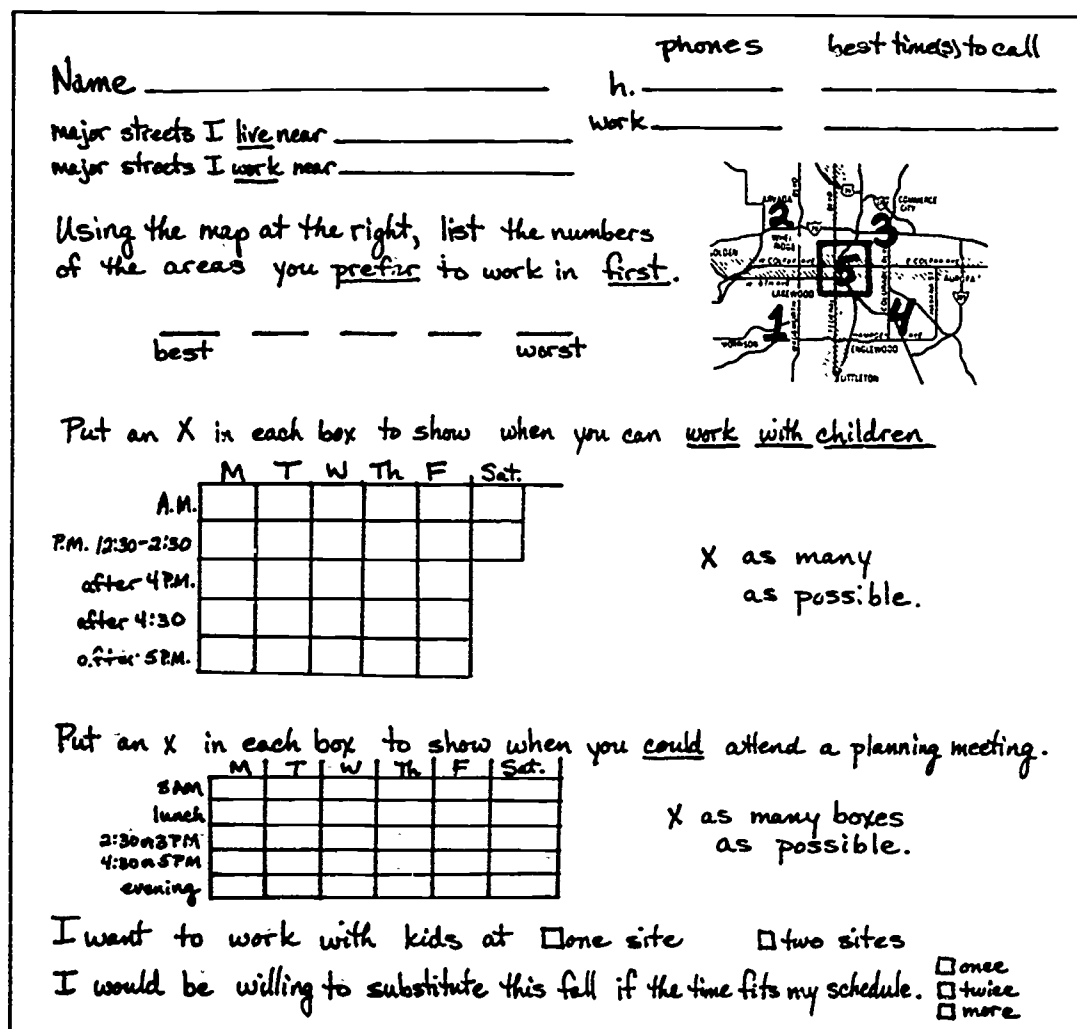 phones best time(s) to call
Name h.
major streets I live near work
major streets I work near
Using the map at the right, list the numbers
of the areas you prefer to work in first.
best worst
ARVADA COMMERCE
CITY
2 3
WHEAT
RIDGE
OLDEN W COLFAX AVE 5 E COLFAX AVE
W 6TH AVE AURORA
LAKEWOOD
1 4
MORRISON ENGLEWOOD
LITTLETON
Put an X in each box to show when you can work with children
M T W Th F Sat.
A.M.
P.M. 12:30-2:30
after 4 P.M.
after 4:30
after 5 P.M.
X as many
as possible.
Put an X in each box to show when you could attend a planning meeting.
M T W Th F Sat.
8AM
lunch
2:30 or 3PM
4:30 or 5PM
evening
X as many boxes
as possible.
I want to work with kids at one site two sites
I would be willing to substitute this fall if the time fits my schedule. once
twice
more